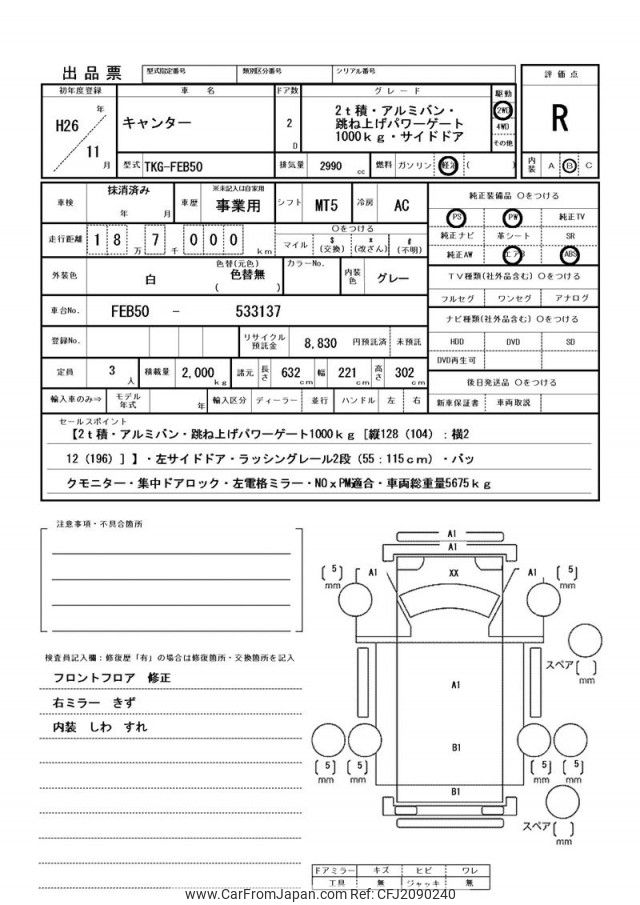 出品票 型式指定番号 類別区分番号 シリアル番号
評価点
R
初年度登録 車名 ドア数 グレード 駆動
H26 年 11 月
キャンター
2 D
2t積・アルミバン・
跳ね上げパワーゲート
1000kg・サイドドア
2WD
4WD
その他
型式 TKG-FEB50 排気量 2990 cc 燃料 ガソリン 軽油 ( )
内装 A B C
車検 抹消済み 年 月 車歴 ※未記入は自家用 事業用 シフト MT5 冷房 AC
走行距離 1 8 万 7 千 0 0 0 km
○をつける
マイル $(交換) *(改ざん) #(不明)
外装色 白 色替(元色) 色替無 ( ) カラーNo. 内装色 グレー
車台No. FEB50 - 533137
登録No. リサイクル預託金 8,830 円預託済 未預託
定員 3 人 積載量 2,000 kg 諸元 長さ 632 cm 幅 221 cm 高さ 302 cm
輸入車のみ⇒ モデル年式 年 輸入区分 ディーラー 並行 ハンドル 左 右
純正装備品 ○をつける
PS PW 純正TV
純正ナビ 革シート SR
純正AW エアB ABS
TV種類(社外品含む) ○をつける
フルセグ ワンセグ アナログ
ナビ種類(社外品含む) ○をつける
HDD DVD SD
DVD再生可
後日発送品 ○をつける
新車保証書 車両取説
セールスポイント
【2t積・アルミバン・跳ね上げパワーゲート1000kg[縦128(104):横2
12(196)]】・左サイドドア・ラッシングレール2段(55:115cm)・バッ
クモニター・集中ドアロック・左電格ミラー・NOxPM適合・車両総重量5675kg
注意事項・不具合箇所
検査員記入欄:修復歴「有」の場合は修復箇所・交換箇所を記入
フロントフロア 修正
右ミラー きず
内装 しわ すれ
A1
A1
[5] mm A1 XX A1 [5] mm
スペア[ ] mm
A1
B1
[5] mm [5] mm [5] mm [5] mm
B1
スペア[ ] mm
ドアミラー キズ ヒビ ワレ
工具 無 ジャッキ 無
www.CarFromJapan.com Ref: CFJ2090240